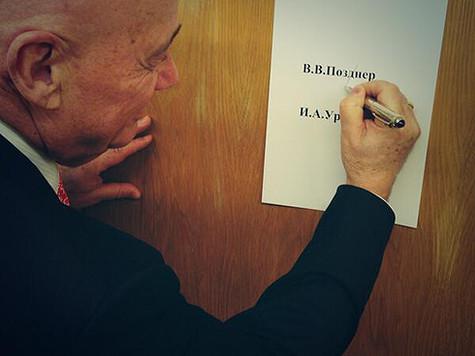 В.В.Позднер
И.А.Ур